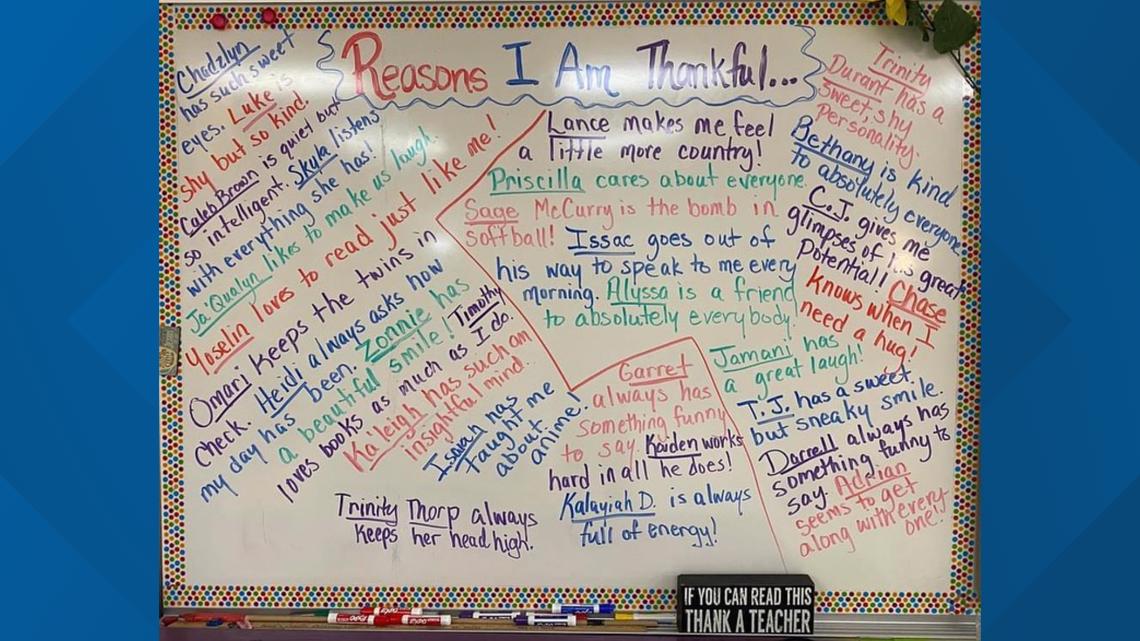 Reasons I Am Thankful...
Chadzlyn
has such sweet
eyes. Luke is
shy but so kind.
Caleb Brown is quiet but
so intelligent. Skyla listens
with everything she has!
Ja'Qualyn likes to make us laugh.
Yoselin loves to read just like me!
Omari keeps the twins in
check. Heidi always asks how
my day has been. Zonnie has
a beautiful smile! Timothy
loves books as much as I do.
Ka'leigh has such an
insightful mind.
Isaiah has
taught me
about
anime!
Trinity Thorp always
keeps her head high.
Lance makes me feel
a little more country!
Priscilla cares about everyone.
Sage McCurry is the bomb in
softball! Issac goes out of
his way to speak to me every
morning. Alyssa is a friend
to absolutely everybody.
Garret
always has
something funny
to say. Kaiden works
hard in all he does!
Kalayiah D. is always
full of energy!
Trinity
Durant has a
sweet, shy
personality.
Bethany is kind
to absolutely everyone.
C.J. gives me
glimpses of his great
Potential! Chase
knows when I
need a hug!
Jamani has
a great laugh!
T.J. has a sweet
but sneaky smile.
Darrell always has
something funny to
say. Adrian
seems to get
along with every
one!
IF YOU CAN READ THIS
THANK A TEACHER
EXPO
EXPO